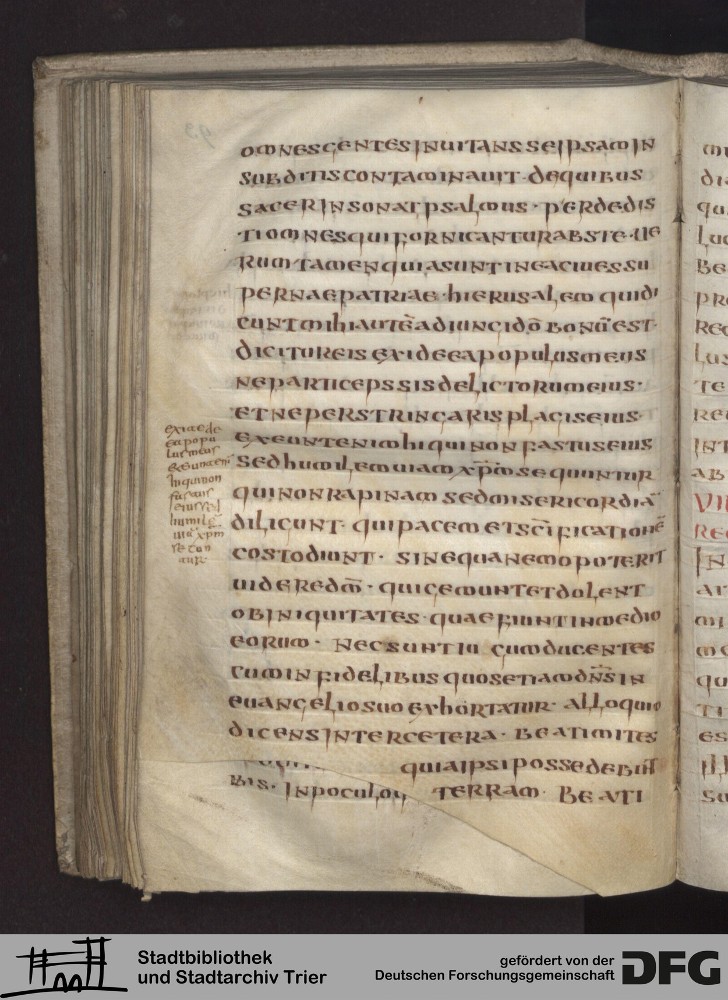 omnes gentes inuitans seipsam in
subditis contaminauit · de quibus
sacer insonat psalmus · perdedis
ti omnes qui fornicantur abs te · ue
rum tamen quia sunt in ea ciues su
pernae patriae · hierusalem qui di
cunt mihi autē adiungi dō bonū est ·
dicitur eis exi de ea populus meus
ne particeps sis delictorum eius ·
et ne perstringaris plagis eius ·
exeunt enim hi qui non fastus eius
sed humilem uiam xp̄m sequuntur
qui non rapinam sed misericordiā
diligunt · qui pacem et sc̄ificationē
costodiunt · sine qua nemo poterit
uidere dm̄ · qui gemunt et dolent
ob iniquitates · quae fiunt in medio
eorum · nec sunt iu gum ducentes
cum infidelibus quos etiam dn̄s in
euangelio suo exhortatur · alloquio
dicens inter cetera · beati mites
quia ipsi possidebūt
bis · in poculo q
terram · beati
exi de de
ea popu
lus meus
exeunt eni
hi qui non
fastus
eius sed
humilē
uiā xpm
secun
tur
93
Stadtbibliothek
und Stadtarchiv Trier
gefördert von der
Deutschen Forschungsgemeinschaft
DFG